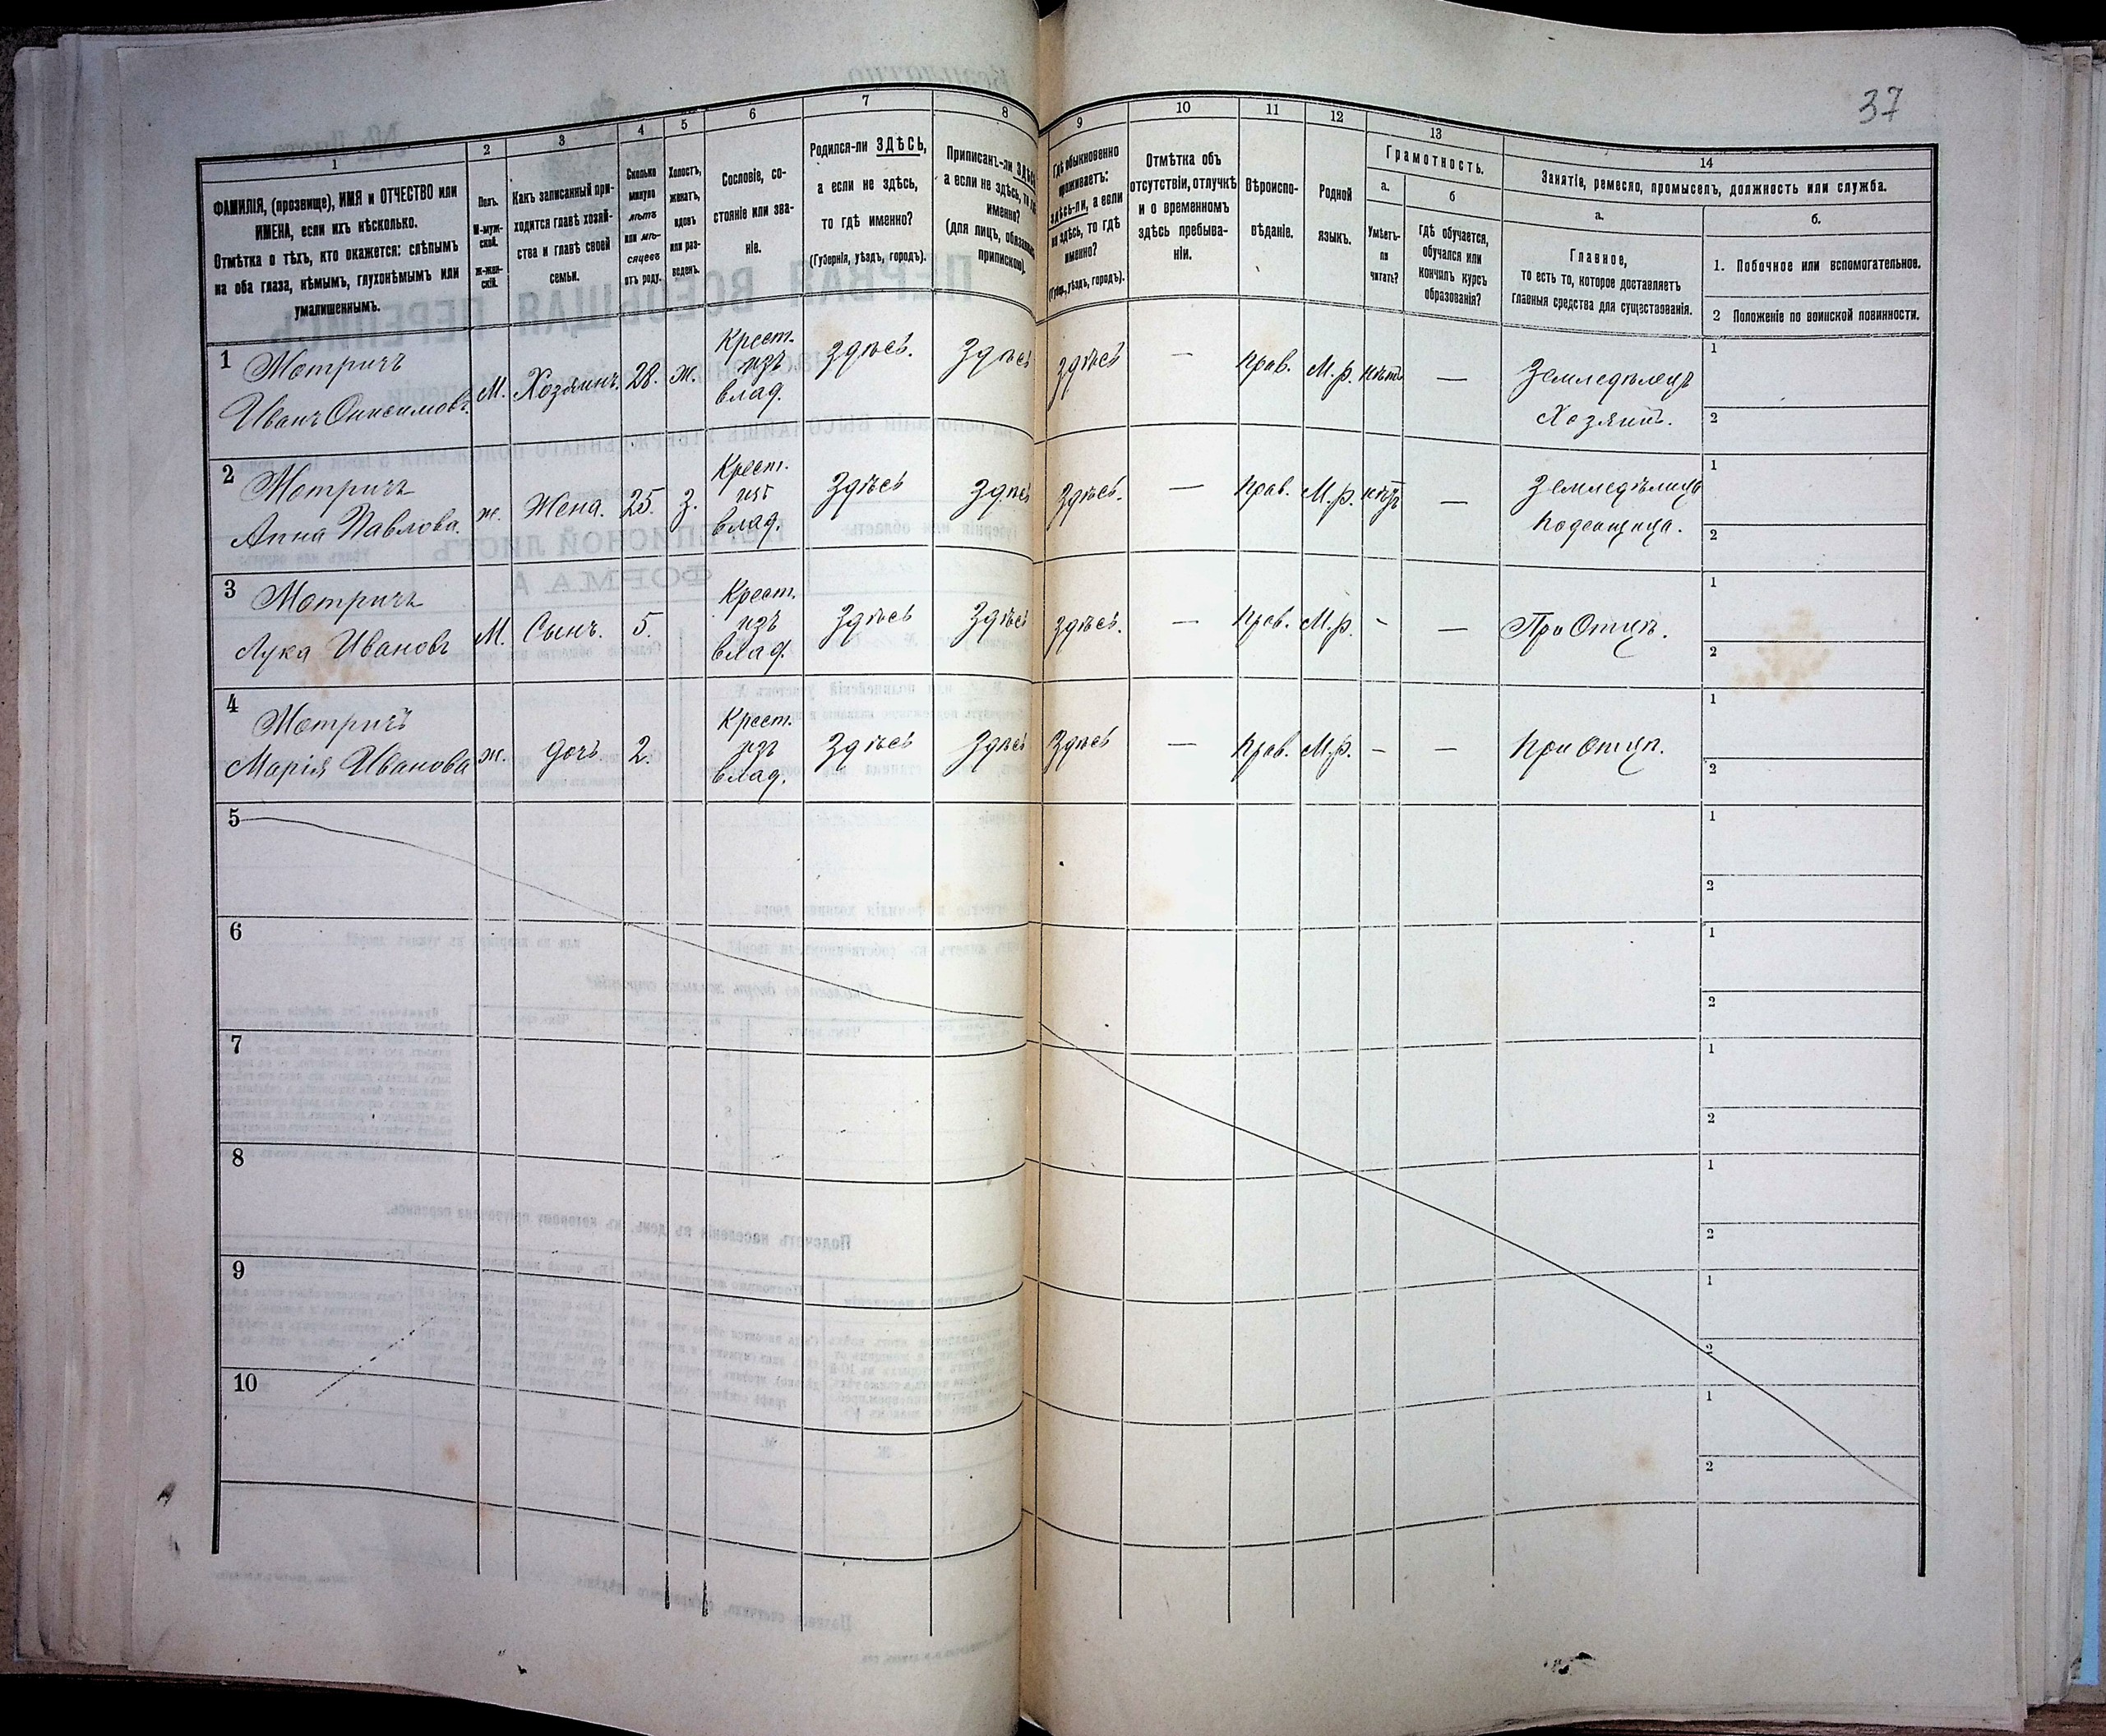 37
1
2
3
4
5
6
7
8
9
10
11
12
13
14
ФАМИЛІЯ, (прозвище), ИМЯ и ОТЧЕСТВО или
ИМЕНА, если ихъ нѣсколько.
Отмѣтка о тѣхъ, кто окажется: слѣпымъ
на оба глаза, нѣмымъ, глухонѣмымъ или
умалишеннымъ.
Полъ.
М-муж-
ской.
ж-жен-
скій.
Какъ записанный при-
ходится главѣ хозяй-
ства и главѣ своей
семьи.
Сколько
минуло
лѣтъ
или мѣ-
сяцевъ
отъ роду.
Холостъ,
женатъ,
вдовъ
или раз-
веденъ.
Сословіе, со-
стояніе или зва-
ніе.
Родился-ли ЗДѢСЬ,
а если не здѣсь,
то гдѣ именно?
(Губернія, уѣздъ, городъ).
Приписанъ-ли ЗДѢСЬ,
а если не здѣсь, то гдѣ
именно?
(для лицъ, обязанныхъ
припискою).
Гдѣ обыкновенно
проживаетъ:
здѣсь-ли, а если
не здѣсь, то гдѣ
именно?
(Губер., уѣздъ, городъ).
Отмѣтка объ
отсутствіи, отлучкѣ
и о временномъ
здѣсь пребыва-
ніи.
Вѣроиспо-
вѣданіе.
Родной
языкъ.
Грамотность.
а.
б
Умѣетъ-
ли
читать?
гдѣ обучается,
обучался или
кончилъ курсъ
образованія?
Занятіе, ремесло, промыселъ, должность или служба.
а.
б.
Главное,
то есть то, которое доставляетъ
главныя средства для существованія.
1. Побочное или вспомогательное.
2 Положеніе по воинской повинности.
1 Мотричъ
Иванъ Онисимовъ М. Хозяинъ. 28. ж. Крест. изъ влад. Здѣсь. Здѣсь здѣсь — Прав. М.р. нѣтъ — Земледѣлецъ Хозяинъ. 1 2
2 Мотричъ
Анна Павлова. ж. Жена. 25. З. Крест. изъ влад. Здѣсь Здѣсь Здѣсь. — Прав. М.р. нѣтъ — Земледѣлица 1 2
3 Мотричъ
Лука Ивановъ М. Сынъ. 5. Крест. изъ влад. Здѣсь Здѣсь Здѣсь. — Прав. М.р. - — При Отцѣ. 1 2
4 Мотричъ
Марія Иванова ж. дочь. 2. Крест. изъ влад. Здѣсь Здѣсь Здѣсь — Прав. М.р. - — При Отцѣ. 1 2
5 1 2
6 1 2
7 1 2
8 1 2
9 1 2
10 1 2